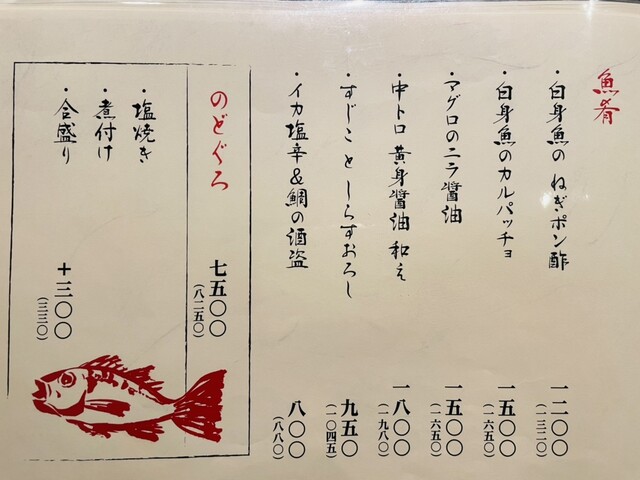 魚肴
・白身魚の ねぎポン酢 一二〇〇
(一三二〇)
・白身魚のカルパッチョ 一五〇〇
(一六五〇)
・マグロのニラ醤油 一五〇〇
(一六五〇)
・中トロ 黄身醤油 和え 一八〇〇
(一九八〇)
・すじこ と しらすおろし 九五〇
(一〇四五)
・イカ塩辛&鯛の酒盗 八〇〇
(八八〇)
のどぐろ 七五〇〇
(八二五〇)
・塩焼き
・煮付け
・合盛り +三〇〇
(三三〇)